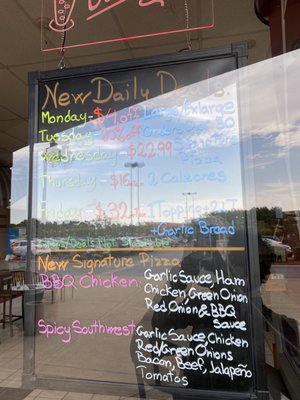 New Daily Deals
Monday- $4 off Large/XLarge
Tuesday- off Orders
Wednesday- $22.99 Signature
Pizza
Thursday $16 2 Calzones
$32 1 Topping
+Garlic Bread
New Signature Pizza
BBQ Chicken: Garlic Sauce, Ham
Chicken, Green Onion
Red Onion & BBQ
Sauce
Spicy Southwest: Garlic Sauce Chicken
Red/Green Onions
Bacon, Beef, Jalapeño
Tomatos